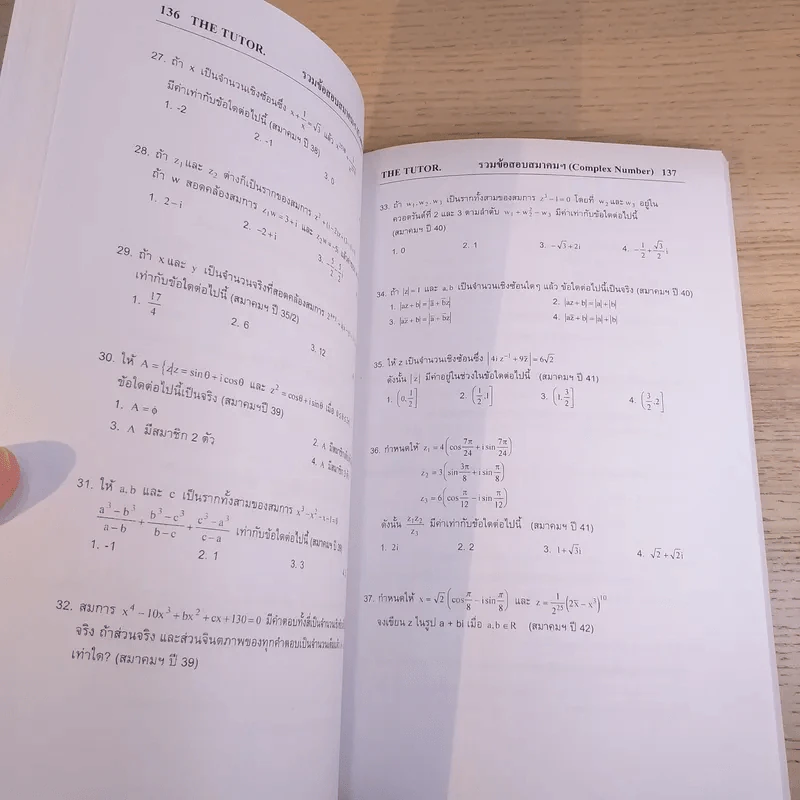 136 THE TUTOR.
รวมข้อสอบสมาคมฯ
27. ถ้า x เป็นจำนวนเชิงซ้อนซึ่ง x + 1/x = √3 แล้ว
มีค่าเท่ากับข้อใดต่อไปนี้ (สมาคมฯ ปี 38)
1. -2 2. -1 3. 0
28. ถ้า z₁ และ z₂ ต่างก็เป็นรากของสมการ
ถ้า w สอดคล้องสมการ z₁w = 3+i และ
1. 2-i 2. -2+i 3.
29. ถ้า x และ y เป็นจำนวนจริงที่สอดคล้องสมการ
เท่ากับข้อใดต่อไปนี้ (สมาคมฯ ปี 35/2)
1. 17/4 2. 6 3. 12
30. ให้ A = {z|z = sinθ + i cosθ และ z² = cosθ + i sinθ เมื่อ
ข้อใดต่อไปนี้เป็นจริง (สมาคมฯปี 39)
1. A = ϕ 2. A มีสมาชิก
3. A มีสมาชิก 2 ตัว 4. A มีสมาชิก
31. ให้ a,b และ c เป็นรากทั้งสามของสมการ x³-x²-x-1=0
(a³-b³)/(a-b) + (b³-c³)/(b-c) + (c³-a³)/(c-a) เท่ากับข้อใดต่อไปนี้ (สมาคมฯ ปี 39)
1. -1 2. 1 3. 3
32. สมการ x⁴-10x³+bx²+cx+130=0 มีคำตอบทั้งสี่เป็นจำนวน
จริง ถ้าส่วนจริง และส่วนจินตภาพของทุกคำตอบเป็นจำนวนเต็ม
เท่าใด? (สมาคมฯ ปี 39)
THE TUTOR. รวมข้อสอบสมาคมฯ (Complex Number) 137
33. ถ้า w₁, w₂, w₃ เป็นรากทั้งสามของสมการ z³-1=0 โดยที่ w₂ และ w₃ อยู่ใน
ควอดรันต์ที่ 2 และ 3 ตามลำดับ w₁+w₂²-w₃ มีค่าเท่ากับข้อใดต่อไปนี้
(สมาคมฯ ปี 40)
1. 0 2. 1 3. -√3+2i 4. -1/2+(√3/2)i
34. ถ้า |z|=1 และ a,b เป็นจำนวนเชิงซ้อนใดๆ แล้ว ข้อใดต่อไปนี้เป็นจริง (สมาคมฯ ปี 40)
1. 2. |az+b|=|a|+|b|
3. 4.
35. ให้ z เป็นจำนวนเชิงซ้อนซึ่ง |4i z⁻¹ + 9z̄| = 6√2
ดังนั้น |z| มีค่าอยู่ในช่วงในข้อใดต่อไปนี้ (สมาคมฯ ปี 41)
1. (0,1/2] 2. (1/2,1] 3. (1,3/2] 4. (3/2,2]
36. กำหนดให้ z₁ = 4(cos 7π/24 + i sin 7π/24)
z₂ = 3(sin 3π/8 + i sin π/8)
z₃ = 6(cos π/12 - i sin π/12)
ดังนั้น z₁z₂/z₃ มีค่าเท่ากับข้อใดต่อไปนี้ (สมาคมฯ ปี 41)
1. 2i 2. 2 3. 1+√3i 4. √2+√2i
37. กำหนดให้ x = √2(cos π/8 - i sin π/8) และ z = 1/2²⁵ (2x̄ - x³)¹⁰
จงเขียน z ในรูป a + bi เมื่อ a,b ∈ R (สมาคมฯ ปี 42)